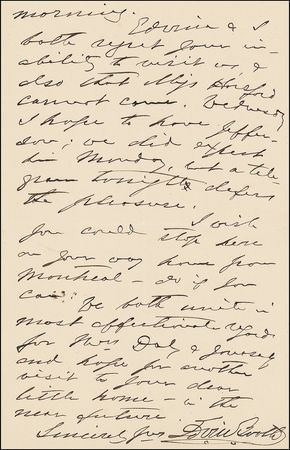 morning.
Edwina & I
both regret your in-
ability to visit us, &
also that Miss
cannot come. Wednesday
I hope to have Jeffer-
son; we did expect
him Monday, but a tele-
gram tonight defers
the pleasure.
I wish
you could stop here
on your way home from
Montreal - do if you
can. We both unite in
most affectionate regards
for Mrs Daly & yourself
and hope for another
visit to your dear
little home - in the
near future.
Sincerely yrs Edwin Booth